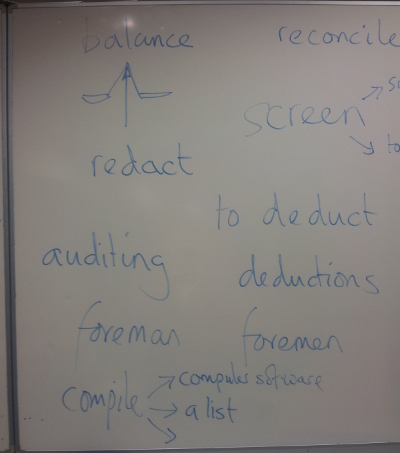 balance
reconcile
screen
redact
to deduct
auditing
deductions
foreman
foremen
compile
computer software
a list